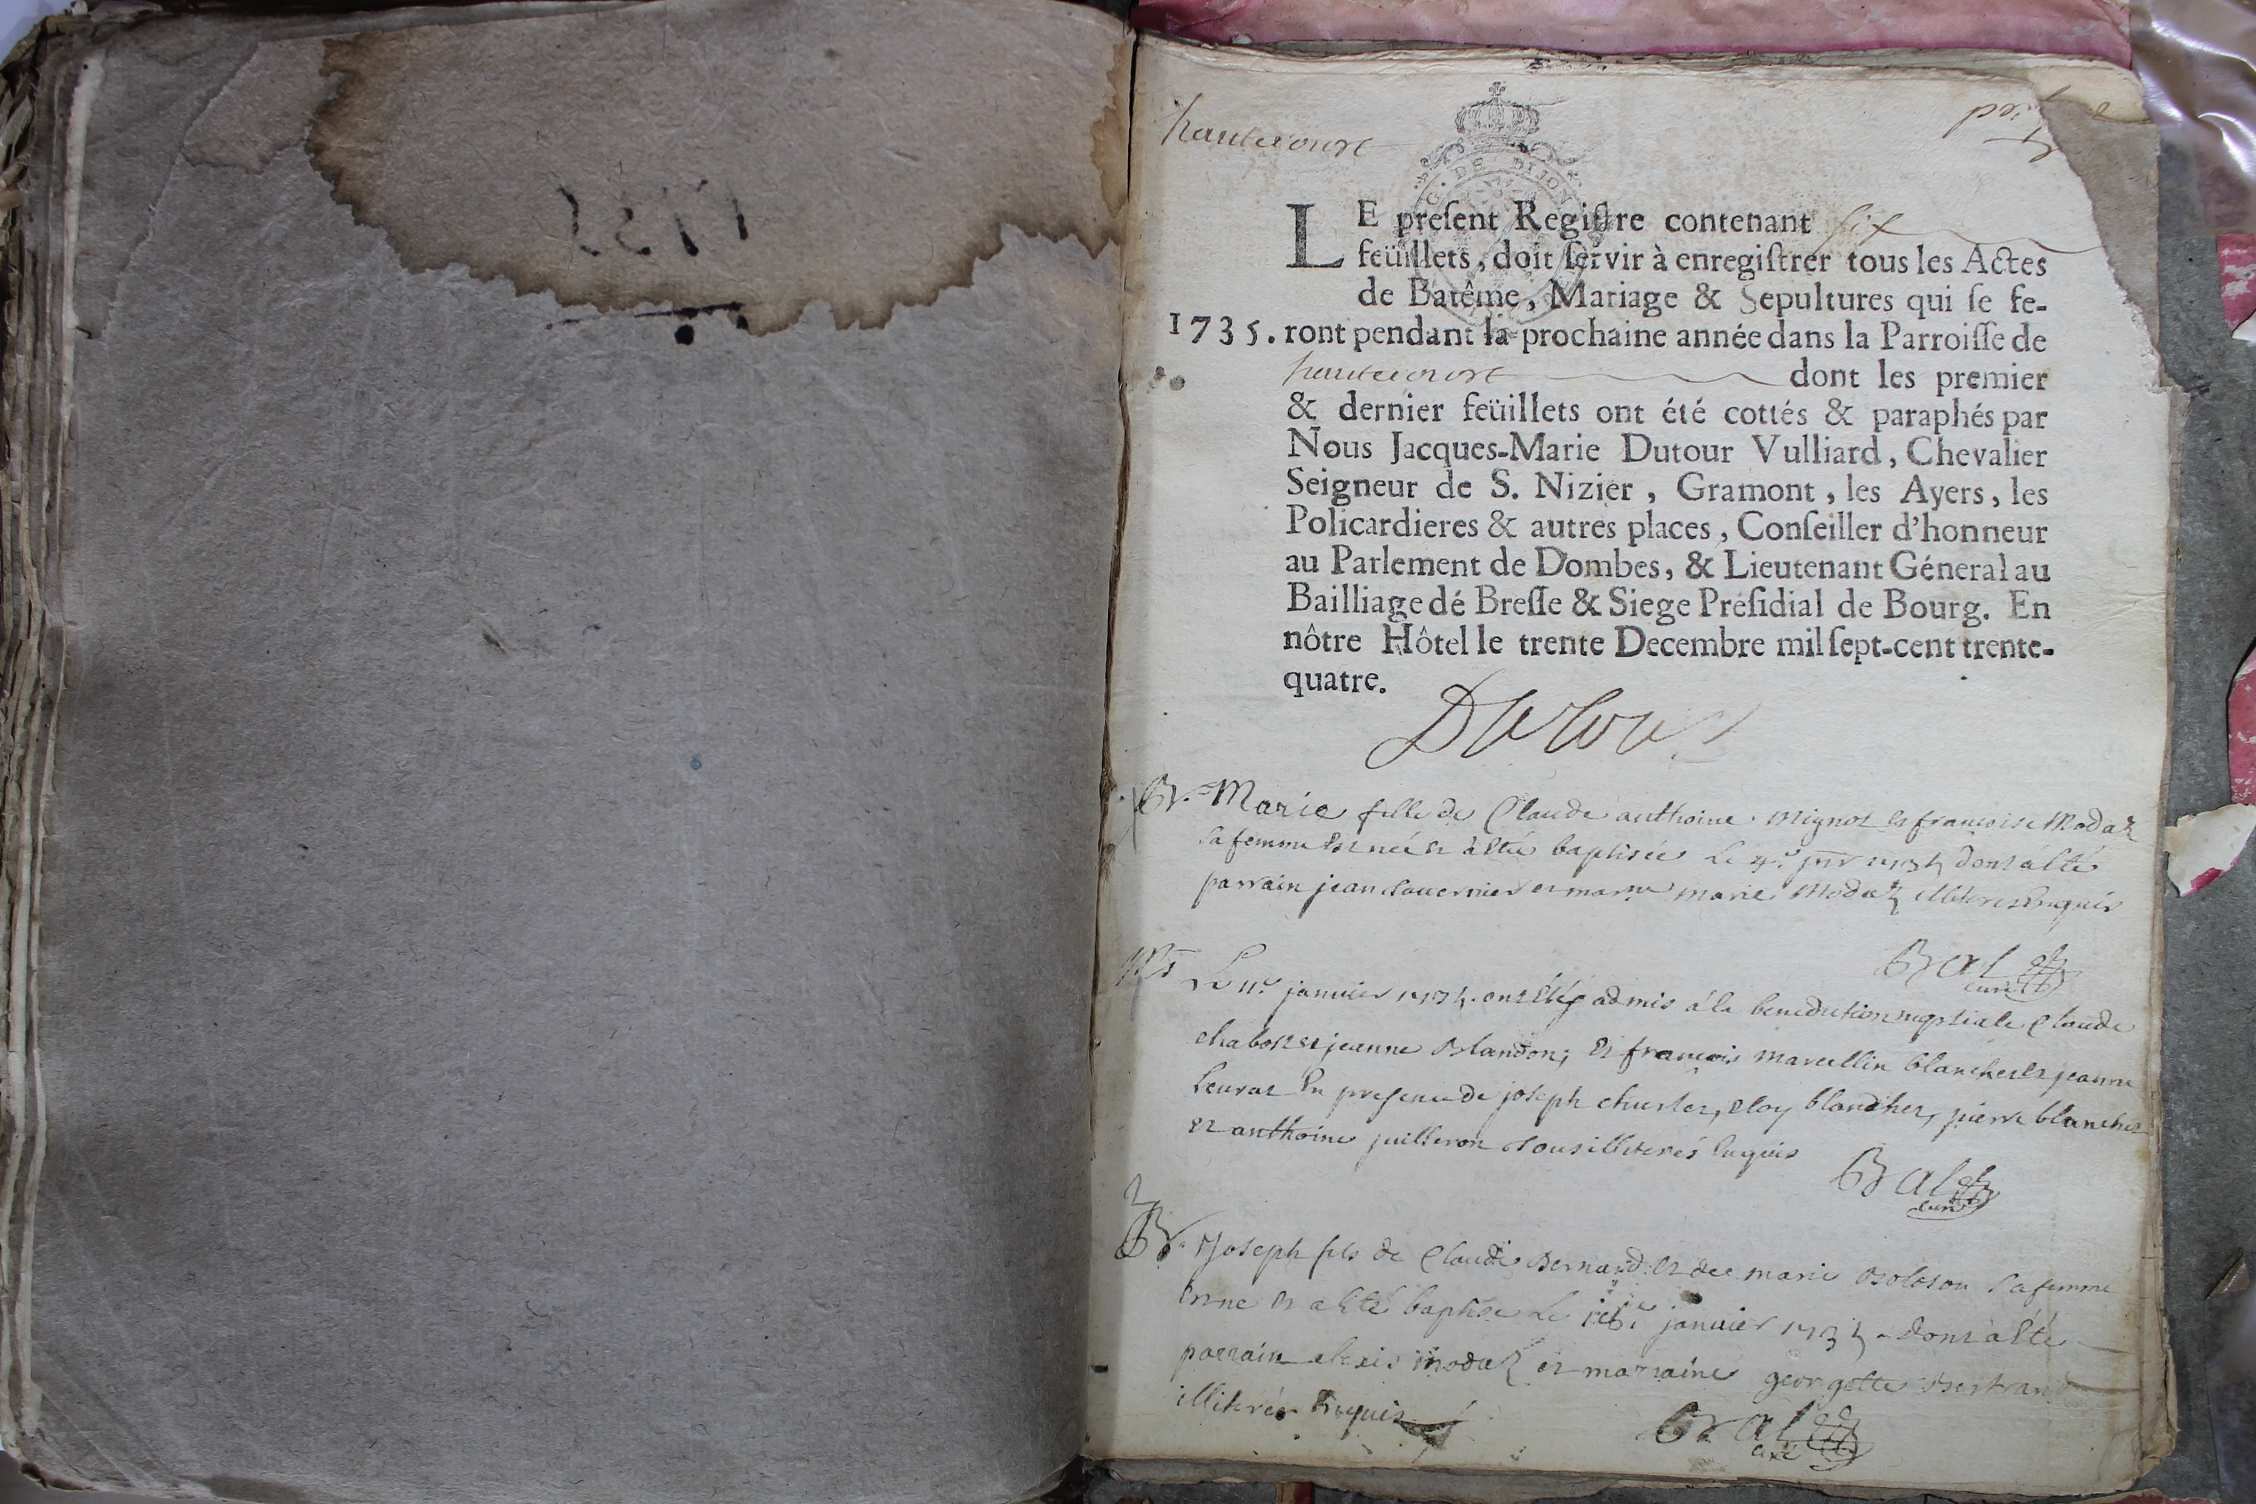 1735
hautecourt
G. DE DIJON
LE preſent Regiſtre contenant ſix
feüillets, doit ſervir à enregiſtrer tous les Actes
de Batême, Mariage & Sepultures qui ſe fe-
1735. ront pendant la prochaine année dans la Parroiſſe de
hautecourt dont les premier
& dernier feüillets ont été cottés & paraphés par
Nous Jacques-Marie Dutour Vulliard, Chevalier
Seigneur de S. Nizier, Gramont, les Ayers, les
Policardieres & autres places, Conſeiller d'honneur
au Parlement de Dombes, & Lieutenant Géneral au
Bailliage dé Breſſe & Siege Préſidial de Bourg. En
nôtre Hôtel le trente Decembre mil ſept-cent trente-
quatre.
Dutour
Br. Marie fille de Claude anthoine mignot et francoise Modaz
sa femme est née et à esté baptisée le 4e jvr 1735 dont à esté
parrain jean et marne marie Modaz illiterés enquis
Bral curé
Le 11e janvier 1735. ont estés admis á la benediction nuptiale Claude
chabost et jeanne Blandon; et francois marcellin blanchet et jeanne
Leurat En presence de joseph, eloy blanchet, pierre blanchet
et anthoine juilleron tous illiterés Enquis
Bral curé
2
Br. Joseph fils de Claude Bernard et de marie sa femme
est né et a esté baptisé le janvier 1735 dont à esté
parrain alexis modaz et marraine georgette Bertrand
illiterés Enquis
Bral curé